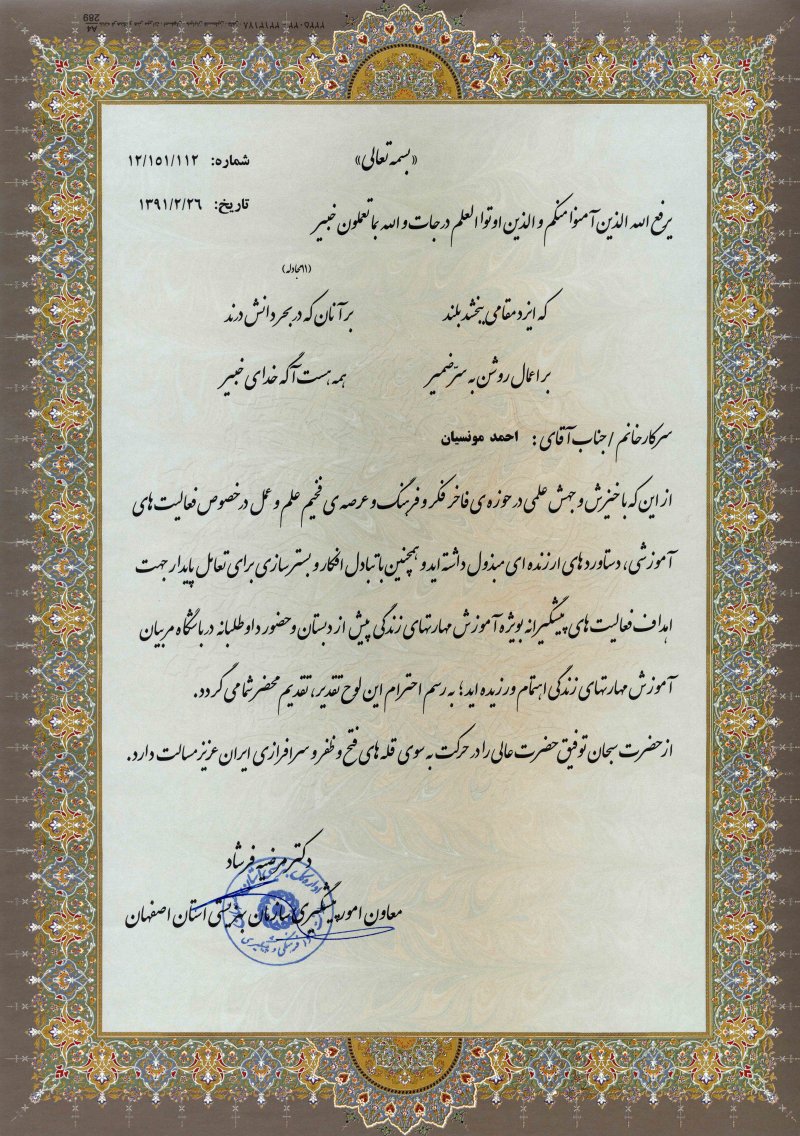 «بسمه تعالی»
شماره: ۱۲/۱۵۱/۱۱۲
تاریخ: ۱۳۹۱/۲/۲۶
یرفع الله الذین آمنوا منکم و الذین اوتوا العلم درجات و الله بما تعملون خبیر
(۱۱ مجادله)
که ایزد مقامی ببخشد بلند برآنان که در بحر دانش درند
بر اعمال روشن به سرّ ضمیر همه هست آگه خدای خبیر
سرکار خانم / جناب آقای: احمد مونسیان
از این که با خیزش و جهش علمی در حوزه ی فاخر فکر و فرهنگ و عرصه ی فخیم علم و عمل در خصوص فعالیت های
آموزشی، دستاوردهای ارزنده ای مبذول داشته اید و همچنین با تبادل افکار و بسترسازی برای تعامل پایدار جهت
اهداف فعالیت های پیشگیرانه بویژه آموزش مهارتهای زندگی پیش از دبستان و حضور داوطلبانه در باشگاه مربیان
آموزش مهارتهای زندگی اهتمام ورزیده اید؛ به رسم احترام این لوح تقدیر، تقدیم محضر شما می گردد.
از حضرت سبحان توفیق حضرت عالی را در حرکت به سوی قله های فتح و ظفر و سرافرازی ایران عزیز مسالت دارد.
دکتر مرضیه فرشاد
معاون امور پیشگیری سازمان بهزیستی استان اصفهان
A4
289